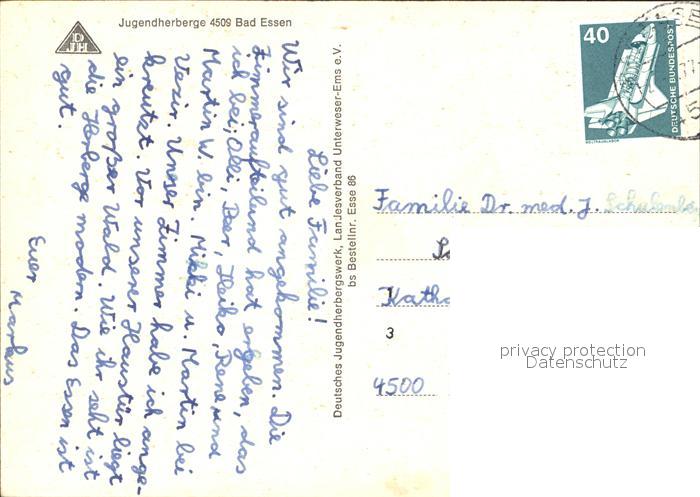 DJH
Jugendherberge 4509 Bad Essen
Liebe Familie!
Wir sind gut angekommen. Die
Zimmeraufteilund hat ergeben, das
ich bei; Olli, Peer, Heiko, Rene, und
Martin W. bin. Mikki u. Martin bei
Vezir. Unser Zimmer habe ich ange-
kreutzt. Vor unserer Haustür liegt
ein großer Wald. Wie ihr seht ist
die Herberge modern. Das Essen ist
gut.
Euer
Markus
Deutsches Jugendherbergswerk, Landesverband Unterweser-Ems e.V.
bs Bestellnr. Esse 86
40
DEUTSCHE BUNDESPOST
WELTRAUMLABOR
Familie Dr. med. J.
Kath
3
4500
privacy protection
Datenschutz